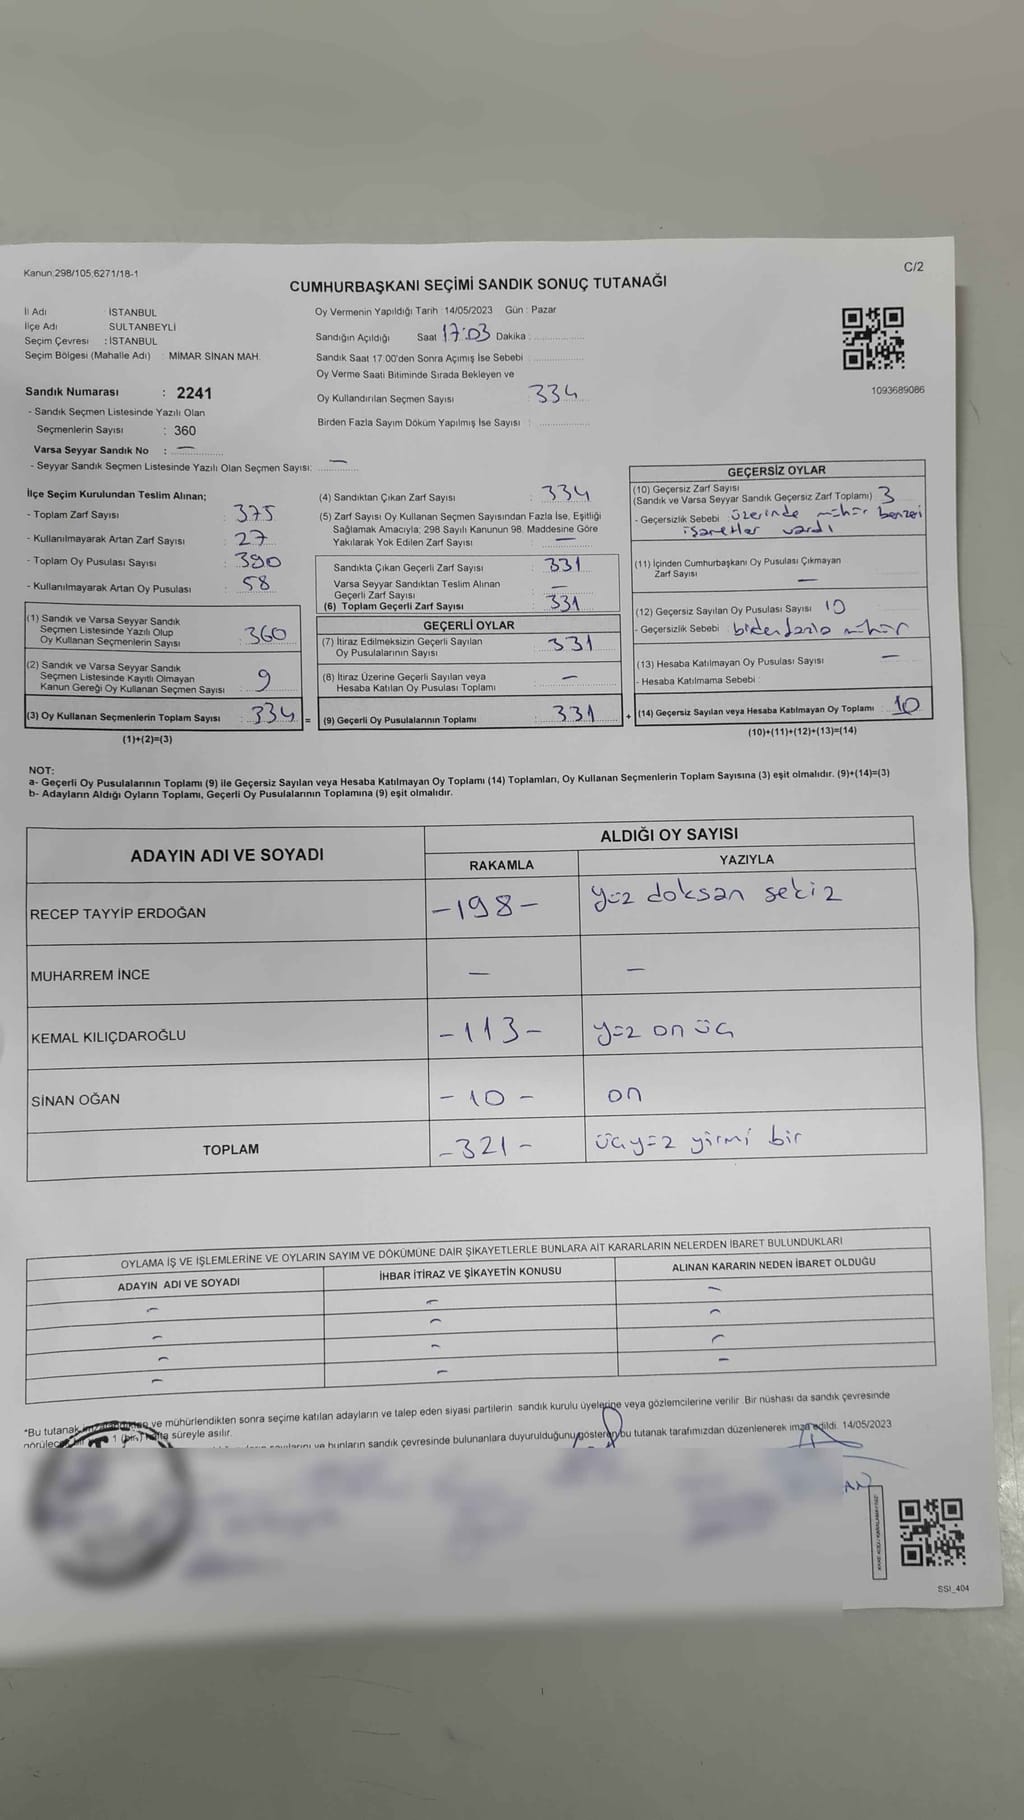 Kanun.298/105,6271/18-1
C/2
CUMHURBAŞKANI SEÇİMİ SANDIK SONUÇ TUTANAĞI
İl Adı İSTANBUL
İlçe Adı SULTANBEYLİ
Seçim Çevresi : İSTANBUL
Seçim Bölgesi (Mahalle Adı) : MİMAR SİNAN MAH.
Oy Vermenin Yapıldığı Tarih : 14/05/2023 Gün : Pazar
Sandığın Açıldığı Saat 17:03 Dakika :
Sandık Saat 17.00'den Sonra Açımış İse Sebebi :
Oy Verme Saati Bitiminde Sırada Bekleyen ve
Oy Kullandırılan Seçmen Sayısı : 334
Birden Fazla Sayım Döküm Yapılmış İse Sayısı :
1093689086
Sandık Numarası : 2241
- Sandık Seçmen Listesinde Yazılı Olan
Seçmenlerin Sayısı : 360
Varsa Seyyar Sandık No : —
- Seyyar Sandık Seçmen Listesinde Yazılı Olan Seçmen Sayısı: —
İlçe Seçim Kurulundan Teslim Alınan;
- Toplam Zarf Sayısı : 375
- Kullanılmayarak Artan Zarf Sayısı : 27
- Toplam Oy Pusulası Sayısı : 390
- Kullanılmayarak Artan Oy Pusulası : 58
(1) Sandık ve Varsa Seyyar Sandık
Seçmen Listesinde Yazılı Olup
Oy Kullanan Seçmenlerin Sayısı : 360
(2) Sandık ve Varsa Seyyar Sandık
Seçmen Listesinde Kayıtlı Olmayan
Kanun Gereği Oy Kullanan Seçmen Sayısı : 9
(3) Oy Kullanan Seçmenlerin Toplam Sayısı : 334 =
(1)+(2)=(3)
(4) Sandıktan Çıkan Zarf Sayısı : 334
(5) Zarf Sayısı Oy Kullanan Seçmen Sayısından Fazla İse, Eşitliği
Sağlamak Amacıyla; 298 Sayılı Kanunun 98. Maddesine Göre
Yakılarak Yok Edilen Zarf Sayısı : —
Sandıkta Çıkan Geçerli Zarf Sayısı : 331
Varsa Seyyar Sandıktan Teslim Alınan
Geçerli Zarf Sayısı : —
(6) Toplam Geçerli Zarf Sayısı : 331
GEÇERLİ OYLAR
(7) İtiraz Edilmeksizin Geçerli Sayılan
Oy Pusulalarının Sayısı : 331
(8) İtiraz Üzerine Geçerli Sayılan veya
Hesaba Katılan Oy Pusulası Toplamı : —
(9) Geçerli Oy Pusulalarının Toplamı : 331 +
GEÇERSİZ OYLAR
(10) Geçersiz Zarf Sayısı
(Sandık ve Varsa Seyyar Sandık Geçersiz Zarf Toplamı) 3
- Geçersizlik Sebebi : üzerinde mühür benzeri
işaretler vardı
(11) İçinden Cumhurbaşkanı Oy Pusulası Çıkmayan
Zarf Sayısı —
(12) Geçersiz Sayılan Oy Pusulası Sayısı : 10
- Geçersizlik Sebebi : birden fazla mühür
(13) Hesaba Katılmayan Oy Pusulası Sayısı : —
- Hesaba Katılmama Sebebi :
(14) Geçersiz Sayılan veya Hesaba Katılmayan Oy Toplamı : 10
(10)+(11)+(12)+(13)=(14)
NOT:
a- Geçerli Oy Pusulalarının Toplamı (9) ile Geçersiz Sayılan veya Hesaba Katılmayan Oy Toplamı (14) Toplamları, Oy Kullanan Seçmenlerin Toplam Sayısına (3) eşit olmalıdır. (9)+(14)=(3)
b- Adayların Aldığı Oyların Toplamı, Geçerli Oy Pusulalarının Toplamına (9) eşit olmalıdır.
ADAYIN ADI VE SOYADI
ALDIĞI OY SAYISI
RAKAMLA YAZIYLA
RECEP TAYYİP ERDOĞAN -198- yüz doksan sekiz
MUHARREM İNCE — —
KEMAL KILIÇDAROĞLU -113- yüz on üç
SİNAN OĞAN -10- on
TOPLAM -321- üçyüz yirmi bir
OYLAMA İŞ VE İŞLEMLERİNE VE OYLARIN SAYIM VE DÖKÜMÜNE DAİR ŞİKAYETLERLE BUNLARA AİT KARARLARIN NELERDEN İBARET BULUNDUKLARI
ADAYIN ADI VE SOYADI İHBAR İTİRAZ VE ŞİKAYETİN KONUSU ALINAN KARARIN NEDEN İBARET OLDUĞU
*Bu tutanak ve mühürlendikten sonra seçime katılan adayların ve talep eden siyasi partilerin sandık kurulu üyelerine veya gözlemcilerine verilir. Bir nüshası da sandık çevresinde
1 (bir) hafta süreyle asılır.
bunların sandık çevresinde bulunanlara duyurulduğunu gösteren bu tutanak tarafımızdan düzenlenerek imza edildi. 14/05/2023
SSI_404